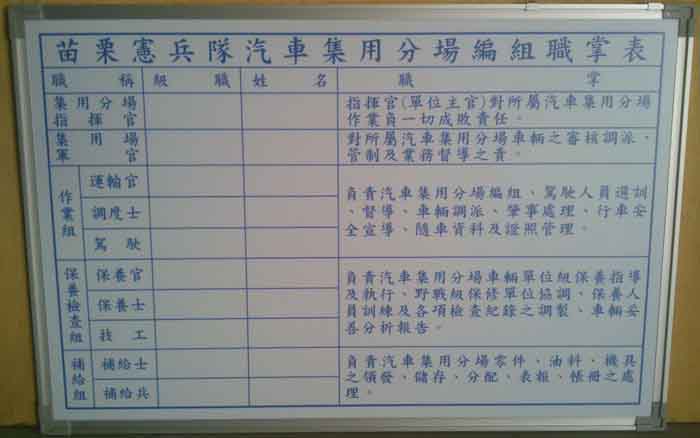 苗栗憲兵隊汽車集用分場編組職掌表
職稱 級職 姓名 職掌
集用分場
指揮官
指揮官(單位主官)對所屬汽車集用分場
作業負一切成敗責任。
集用場
軍官
對所屬汽車集用分場車輛之審核調派、
管制及業務督導之責。
作業組
運輸官
調度士
駕駛
負責汽車集用分場編組、駕駛人員選訓
、督導、車輛調派、肇事處理、行車安
全宣導、隨車資料及證照管理。
保養檢查組
保養官
保養士
技工
負責汽車集用分場車輛單位級保養指導
及執行、野戰級保修單位協調、保養人
員訓練及各項檢查紀錄之調製、車輛妥
善分析報告。
補給組
補給士
補給兵
負責汽車集用分場零件、油料、機具
之領發、儲存、分配、表報、帳冊之處
理。